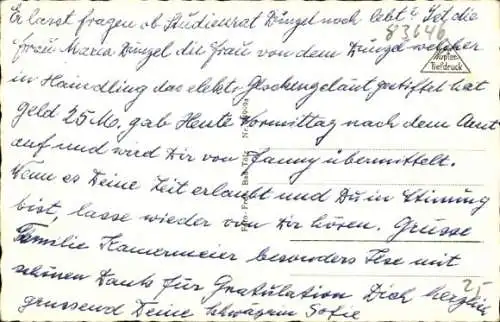 Er lasst fragen ob Studienrat Düngel noch lebt? Ist die
Frau Maria Düngel die Frau von dem Düngel welcher
in Haindling das elektr. Glockengeläut gestiftet hat
geld 25 M. gab Heute Vormittag nach dem Amt
auf und wird Dir von Fanny übermittelt.
Wenn es Deine Zeit erlaubt und Du in Stimung
bist, lasse wieder von Dir hören. Grüsse
Familie Kamermeier besonders Rese mit
schönen Dank für Gratulation Dich herzlich
grüssend Deine Schwägerin Sofie
83646
Kupfer-
Tiefdruck
25